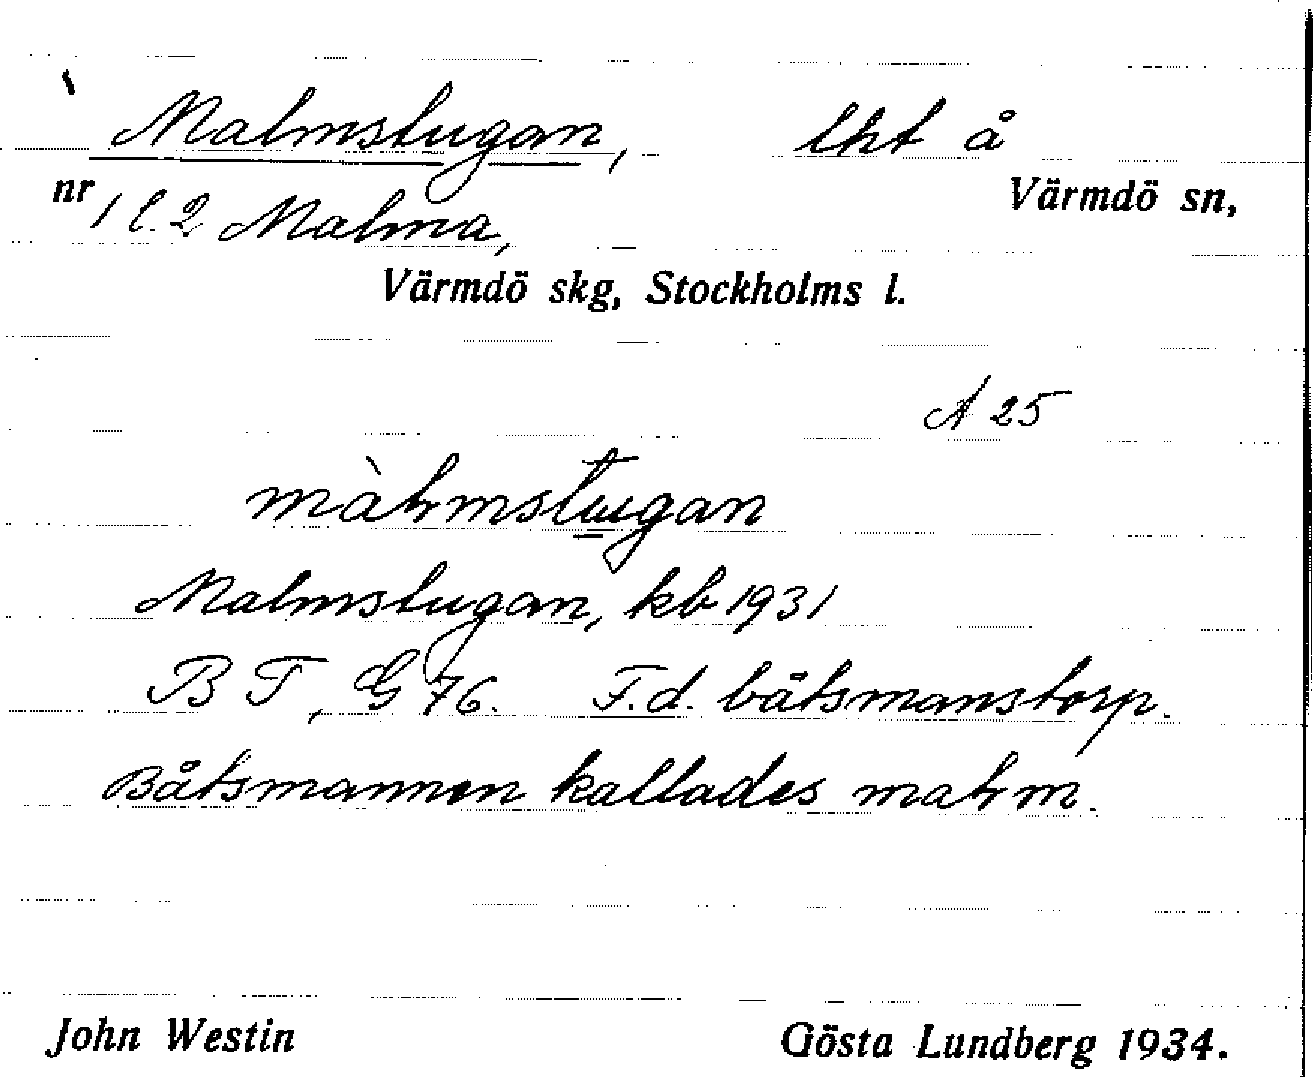 Malmstugan, lht å
Värmdö sn,
nr 1 l. 2 Malma,
Värmdö skg, Stockholms l.
A 25
màłmstugan
Malmstugan, kb 1931
B F, G 76. F.d. båtsmanstorp.
Båtsmannen kallades małm.
John Westin Gösta Lundberg 1934.